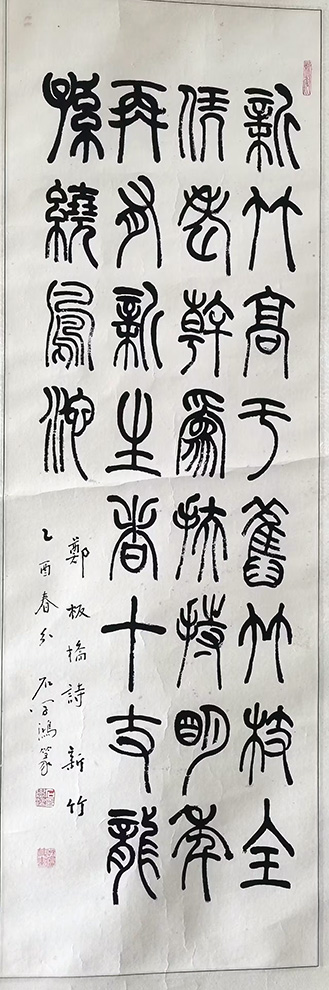 新竹高于舊竹枝全
凭老幹為扶持明年
再有新生者十丈龍
孫繞鳳池
鄭板橋詩新竹
乙酉春分 鴻篆